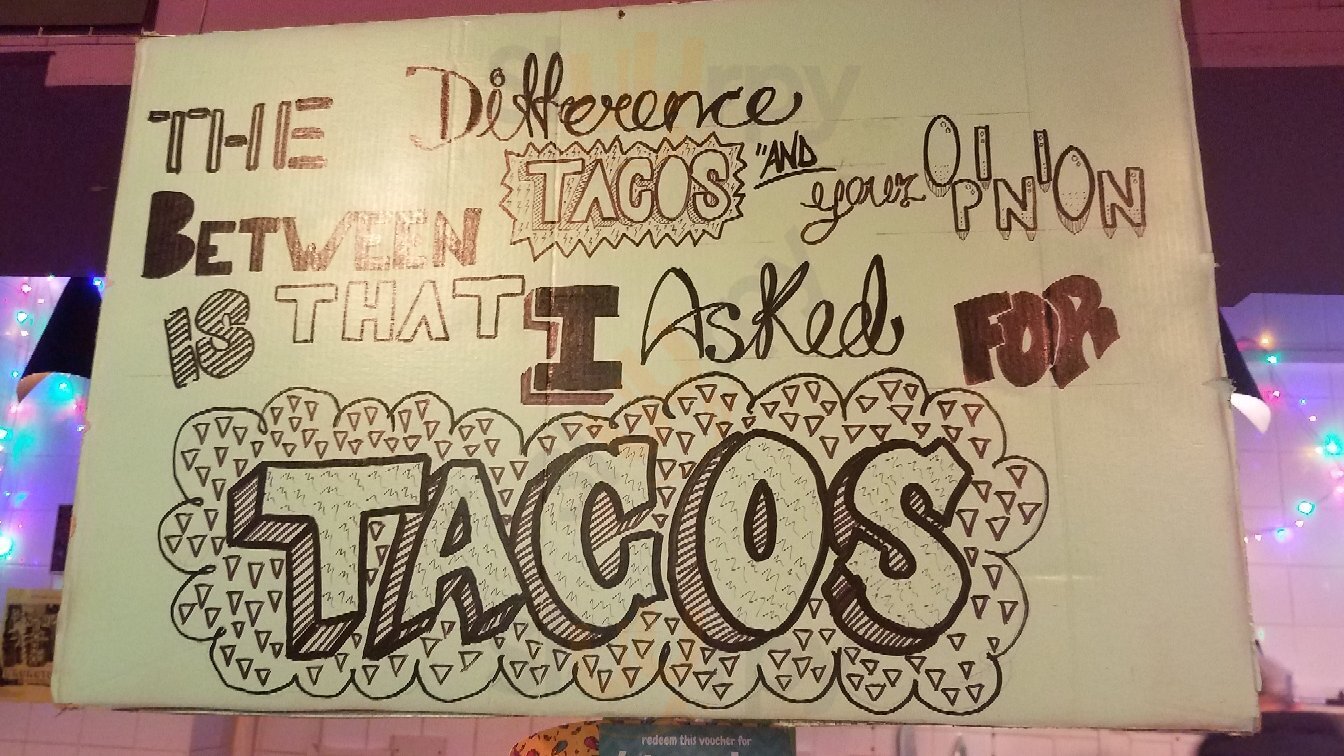 THE Difference
BETWEEN TACOS "AND your OPINION
IS THAT I Asked FOR
TACOS
redeem this voucher for